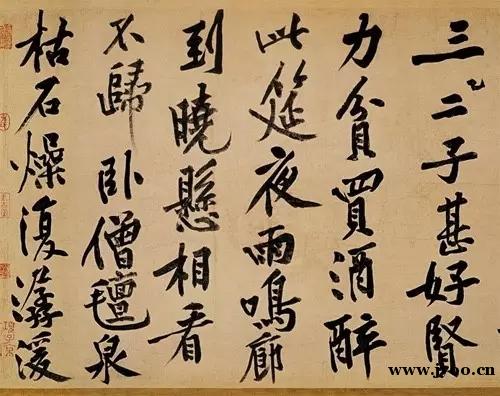 三二子甚好賢
力貧買酒醉
此筵夜雨鳴廊
到曉懸相看
不歸臥僧氈泉
枯石燥復潺湲